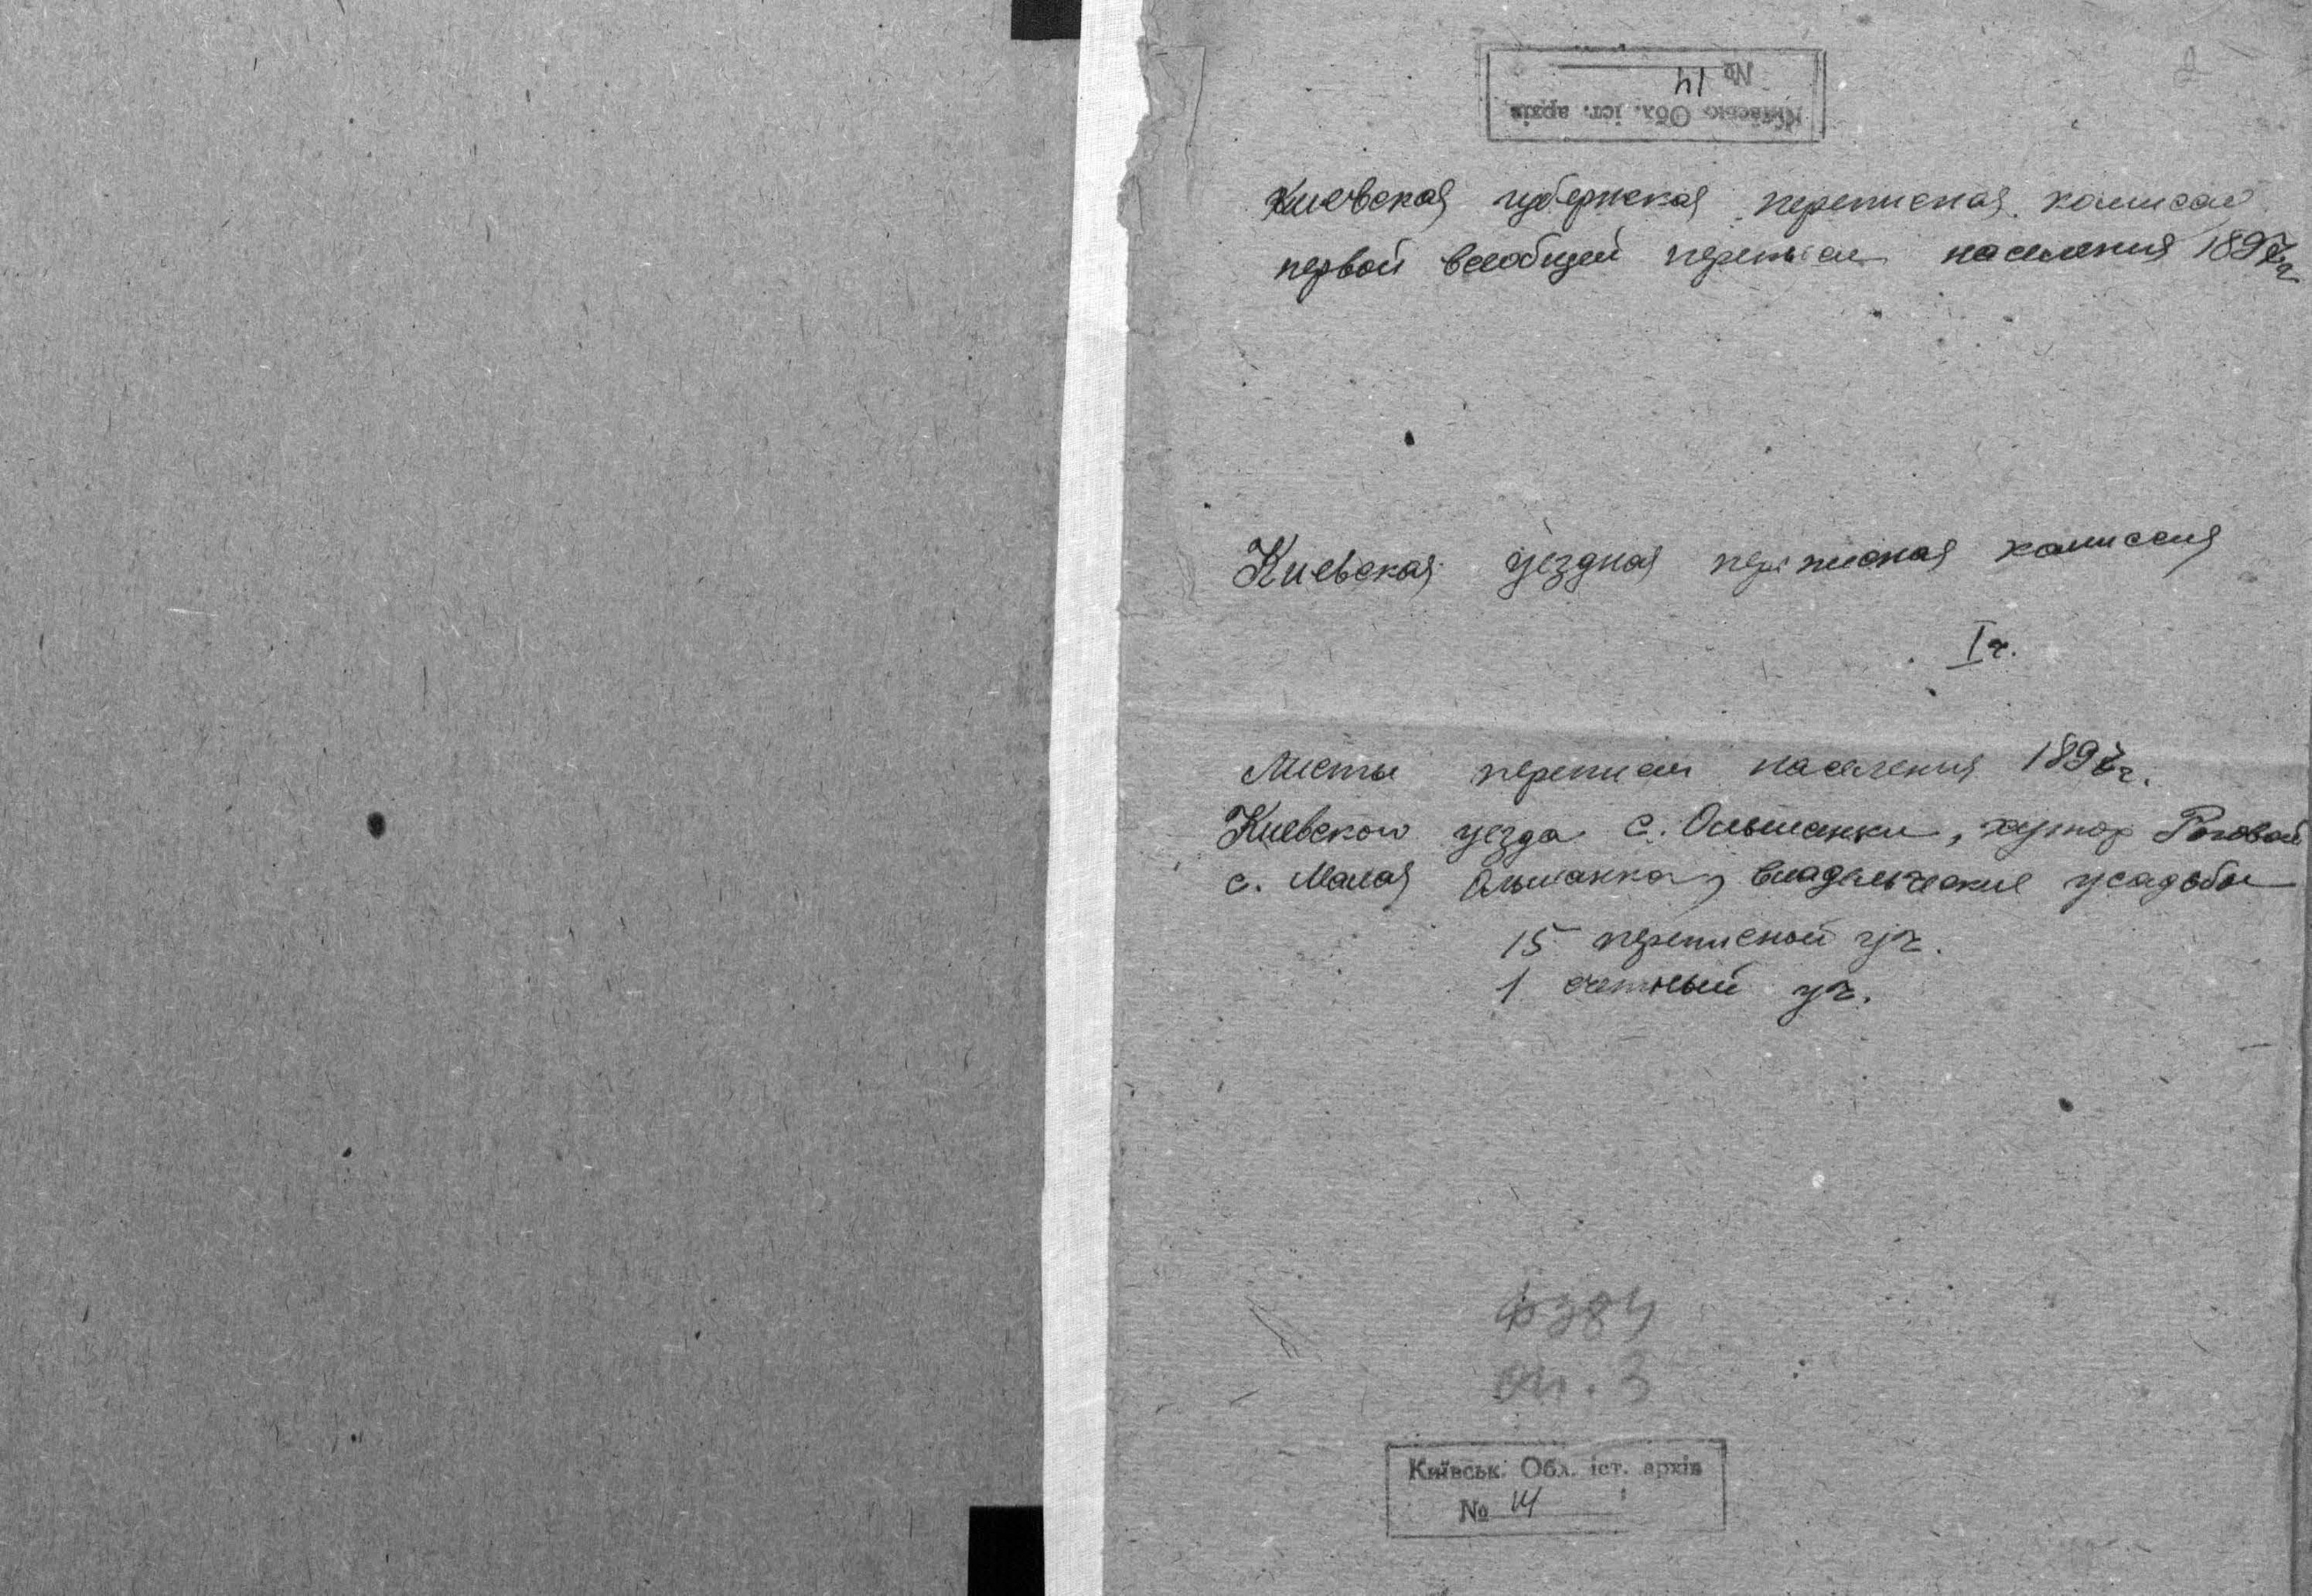 Київськ. Обл. іст. архів
№ 14
Киевская губернская переписная комиссия
первой всеобщей переписи населения 1897 г
Киевская уездная переписная комиссия
I ч.
Листы переписи населения 1897 г.
Киевского уезда с. Ольшанки, хутор Роговой
с. Малая Ольшанка, владельческие усадьбы
15 переписной уч.
1 счетный уч.
ф 384
оп. 3
Київськ. Обл. іст. архів
№ 14